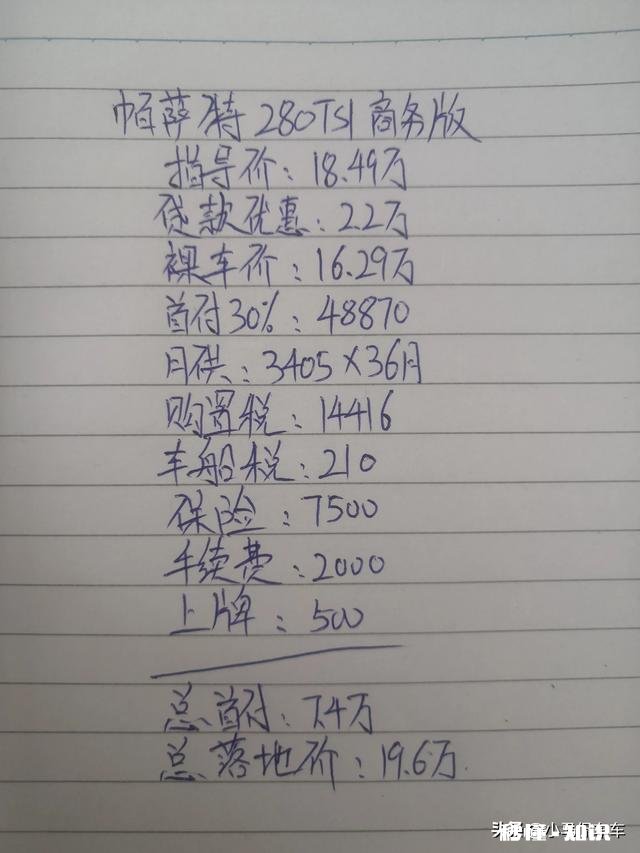 帕萨特280TSI商务版
指导价：18.49万
贷款优惠：2.2万
裸车价：16.29万
首付30%：48870
月供：3405×36月
购置税：14416
车船税：210
保险：7500
手续费：2000
上牌：500
总首付：7.4万
总落地价：19.6万
秒懂·知识